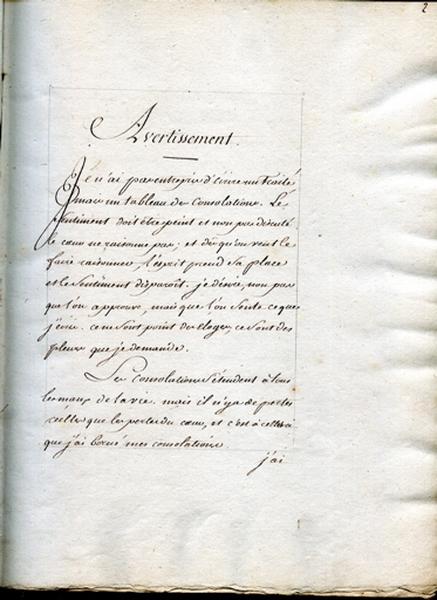 2
Avertissement.
Je n'ai pas entrepris d'écrire un Traité
mais un tableau des Consolations. Le
sentiment doit être peint et non pas discuté
le cœur ne raisonne pas; et dès qu'on veut le
faire raisonner, l'esprit prend sa place
et le Sentiment disparoit. je désire, non pas
que l'on approuve, mais que l'on Sente ce que
j'écris. ce ne Sont point des éloges, ce Sont des
pleurs que je demande.
Les Consolations s'étendent à tous
les maux de la vie. mais il n'y a de pertes
réelles que les pertes du cœur, et c'est à celles-là
que j'ai borné mes consolations
j'ai